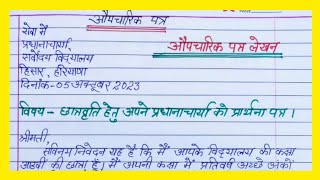 औपचारिक पत्र
सेवा में
प्रधानाचार्या,
सर्वोदय विद्यालय
हिसार, हरियाणा
दिनांक-05 अक्टूबर 2023
औपचारिक पत्र लेखन
विषय - छात्रवृति हेतु अपने प्रधानाचार्या को प्रार्थना पत्र ।
श्रीमती,
सविनय निवेदन यह है कि मैं आपके विद्यालय की कक्षा
आठवीं की छात्रा हूँ। मैं अपनी कक्षा में प्रतिवर्ष अच्छे अंकों